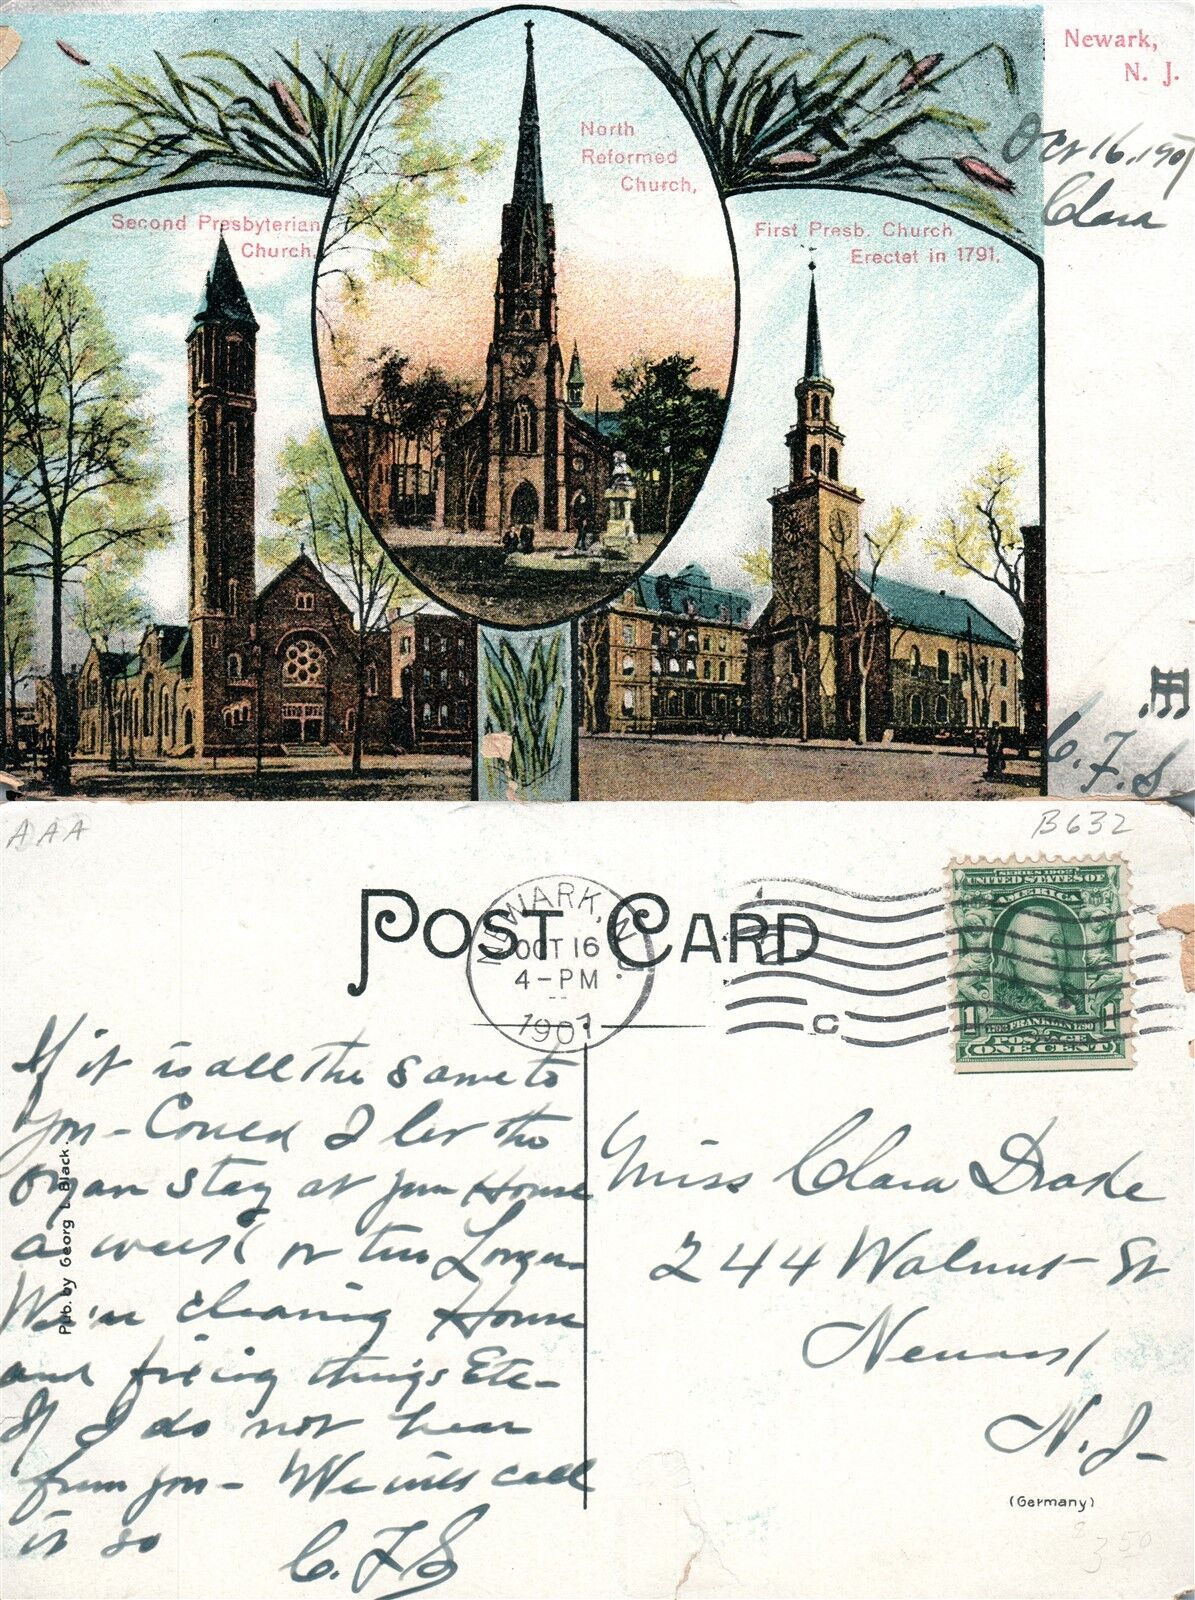 Newark,
N. J.
Oct 16, 1907
Clara
Second Presbyterian
Church.
North
Reformed
Church,
First Presb. Church
Erectet in 1791.
C. F. S.
AAA
B632
POST CARD
NEWARK, N.J.
OCT 16
4-PM
1907
C
SERIES 1902
UNITED STATES OF
AMERICA
1 FRANKLIN 1790 1
POSTAGE
ONE CENT
If it is all the same to
you - Could I let the
organ stay at your House
a week or two Longer -
We're cleaning House
and fixing things Etc -
If I do not hear
from you - We will call
it so
C. F. S.
Pub. by Georg L Black.
Miss Clara Drake
244 Walnut St
Newark
N. J.
(Germany)
3 50